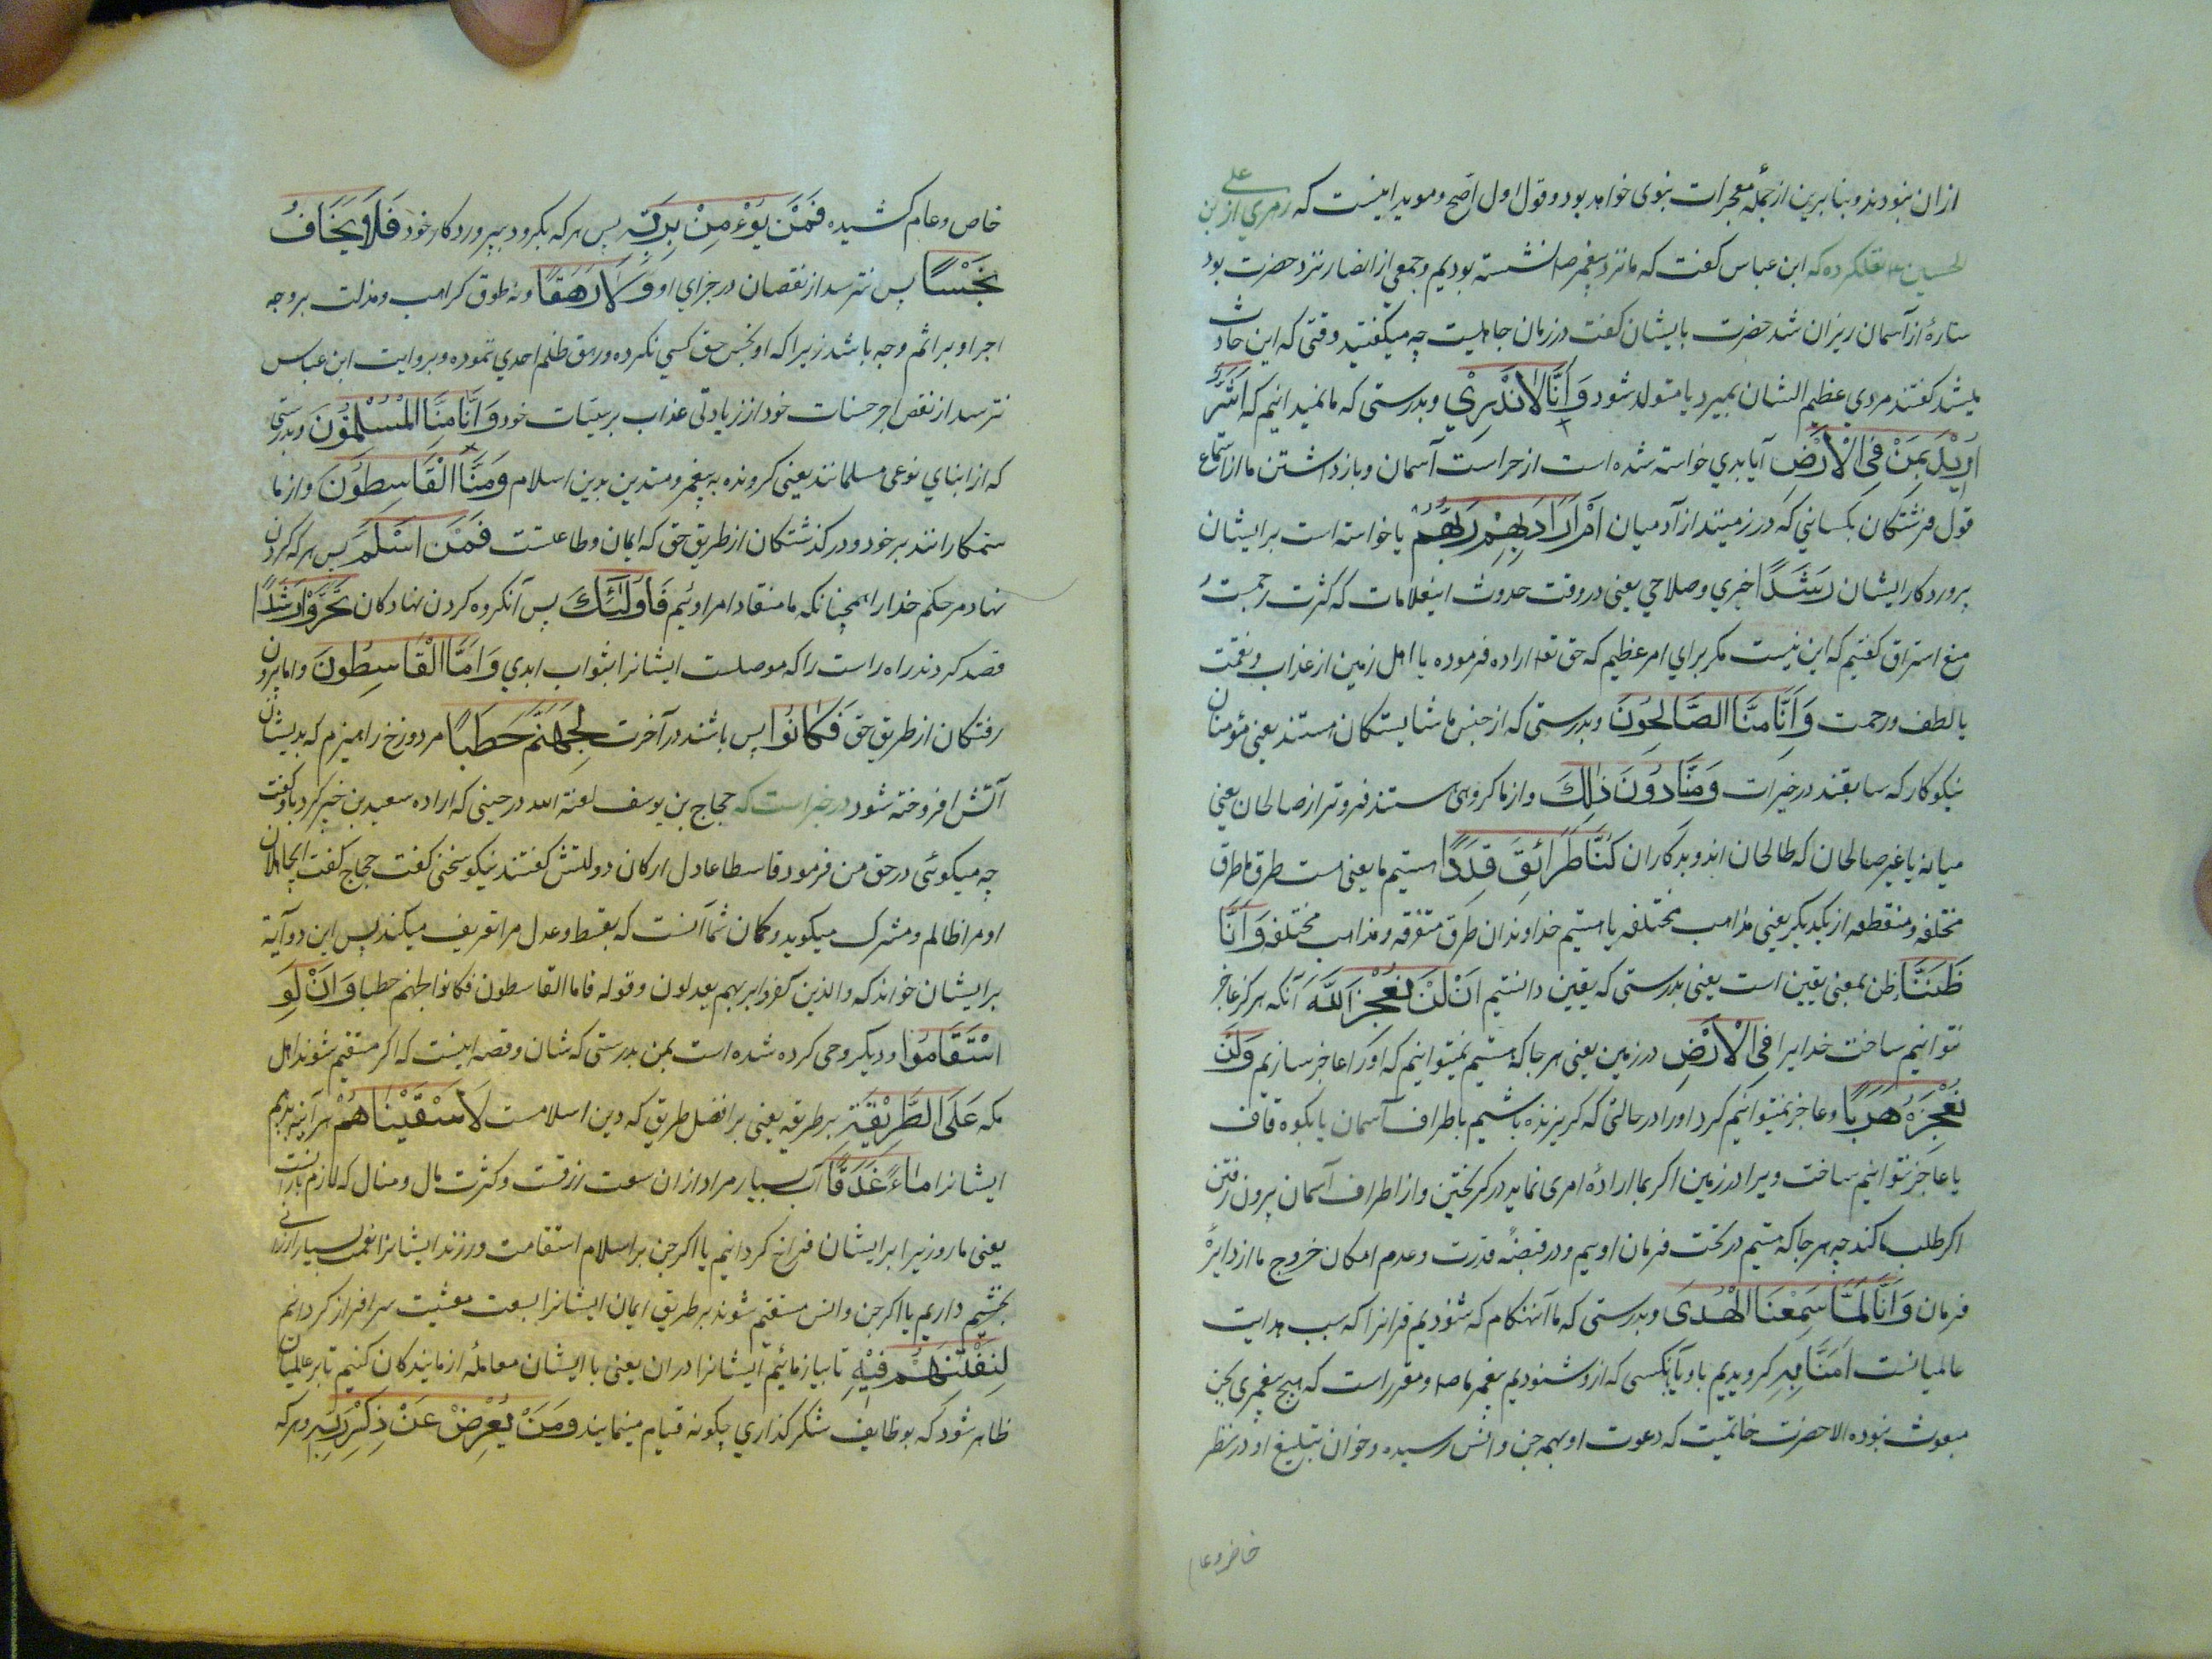 ازان نبودند و بنا برین از جمله معجزات نبوی خواهد بود و قول اول اصح و موید اینست که زهری از علی بن
الحسین ع نقلکرده که ابن عباس کفت که ما نزد پیغمبر ص نشسته بودیم و جمعی از انصار نزد حضرت بود
ستارهٔ از آسمان ریزان شد حضرت بایشان کفت در زمان جاهلیت چه میکفتید وقتی که این حادث
میشد کفتند مردی عظیم الشان بمیرد یا متولد شود وَأَنَّا لَا نَدْرِي و بدرستی که ما نمیدانیم که أَشَرٌّ
أُرِيْدَ بِمَنْ فِي الْأَرْضِ آیا بدی خواسته شده است از حراست آسمان و بازداشتن ما از استماع
قول فرشتکان بکسانی که در زمینند از آدمیان أَمْ أَرَادَ بِهِمْ رَبُّهُمْ یا خواسته است بر ایشان
پروردکار ایشان رَشَدًا خیری و صلاحی یعنی در وقت حدوث اینعلامات که کثرت رجمست و
منع استراق کفتیم که این نیست مکر برای امر عظیم که حق تعا اراده فرموده با اهل زمین از عذاب و نقمت
یا لطف و رحمت وَأَنَّا مِنَّا الصَّالِحُونَ و بدرستی که از جنس ما شایستکان هستند یعنی مؤمنان
نیکوکار که سابقند در خیرات وَمِنَّا دُونَ ذٰلِكَ و از ما کروهی هستند فروتر از صالحان یعنی
میانه یا غیر صالحان که طالحان اند و بدکاران كُنَّا طَرَائِقَ قِدَدًا هستیم ما یعنی هست طرق ما طرق
مختلفه و منقطعه از یکدیکر یعنی مذاهب مختلفه یا هستیم خداوندان طرق متفرقه و مذاهب مختلفه وَأَنَّا
ظَنَنَّا ظن بمعنی یقین است یعنی بدرستی که یقین دانستیم أَنْ لَنْ نُعْجِزَ اللَّهَ آنکه هرکز عاجز
نتوانیم ساخت خدایرا فِي الْأَرْضِ در زمین یعنی هر جا که هستیم نمیتوانیم که او را عاجز سازیم وَلَنْ
نُعْجِزَهُ هَرَبًا و عاجز نمیتوانیم کرد او را در حالتی که کریزنده باشیم باطراف آسمان یا بکوه قاف
یا عاجز نتوانیم ساخت ویرا در زمین اکر بما ارادهٔ امری نماید در کریختن و از اطراف آسمان بیرون رفتن
اکر طلب ما کند چه هر جا که هستیم در تحت فرمان اوییم و در قبضهٔ قدرت و عدم امکان خروج ما از دایرهٔ
فرمان وَأَنَّا لَمَّا سَمِعْنَا الْهُدَى و بدرستی که ما آنهنکام که شنودیم قرانرا که سبب هدایت
عالمیانست آمَنَّا بِهِ کرویدیم باو یا بآنکسی که ازو شنودیم پیغمبر ما ص و مقرر است که هیچ پیغمبری بجن
مبعوث نبوده الا حضرت خاتمیت که دعوت او بهمه جن و انس رسیده و خوان تبلیغ او در نظر
خاص و عام
خاص و عام کشیده فَمَنْ يُؤْمِنْ بِرَبِّهِ پس هر که بکرود بپروردکار خود فَلَا يَخَافُ
بَخْسًا پس نترسد از نقصان در جزای او وَلَا رَهَقًا و نه طوق کراهت و مذلت بر وجه
اجر او بر اتم وجه باشد زیرا که او بخس حق کسی نکرده و رهق ظلم احدی ننموده و بروایت ابن عباس
نترسد از نقص اجر حسنات خود از زیادتی عذاب بر سیئات خود وَأَنَّا مِنَّا الْمُسْلِمُونَ و بدرستی
که از ابنای نوعی مسلمانند یعنی کرونده به پیغمبر و متدین بدین اسلام وَمِنَّا الْقَاسِطُونَ و از ما
ستمکارانند بر خود و درکذشتکان از طریق حق که ایمان و طاعتست فَمَنْ أَسْلَمَ پس هر که کردن
نهاد مر حکم خدا را همچنانکه ما منقاد امر اوئیم فَأُولٰئِكَ پس آنکروه کردن نهادکان تَحَرَّوْا رَشَدًا
قصد کردند راه راست را که موصلست ایشانرا بثواب ابدی وَأَمَّا الْقَاسِطُونَ و اما بیرون
رفتکان از طریق حق فَكَانُوا پس باشند در آخرت لِجَهَنَّمَ حَطَبًا مر دوزخ را هیزم که بدیشان
آتش افروخته شود در خبر است که حجاج بن یوسف لعنة الله در حینی که اراده سعید بن جبیر کرد باو کفت
چه میکوئی در حق من فرمود قاسط عادل ارکان دولتش کفتند نیکو سخنی کفت حجاج کفت ایجاهلان
او مرا ظالم و مشرک میکوید و کمان شما آنست که بقسط و عدل مرا تعریف میکند پس این دو آیه
بر ایشان خواند که والذین کفروا بربهم یعدلون و قوله فاما القاسطون فکانوا لجهنم حطبا وَأَنْ لَوِ
اسْتَقَامُوا و دیکر وحی کرده شده است بمن بدرستی که شان و قصه اینست که اکر مستقیم شوند اهل
مکه عَلَى الطَّرِيْقَةِ بر طریقه یعنی بر افضل طریق که دین اسلامست لَأَسْقَيْنَاهُمْ هر آینه بدهیم
ایشانرا مَاءً غَدَقًا آب بسیار مراد ازان سعت رزقست و کثرت مال و منال که لازم بارانست
یعنی ما روزیرا بر ایشان فراخ کردانیم یا اکر جن بر اسلام استقامت ورزند ایشانرا نعمت بسیار ارزانی
بخشیم داریم یا اکر جن و انس مستقیم شوند بر طریق ایمان ایشانرا بسعت معشیت سرافراز کردانیم
لِنَفْتِنَهُمْ فِيْهِ تا بیازمائیم ایشانرا دران یعنی با ایشان معاملهٔ ازمایندکان کنیم تا بر عالمیان
ظاهر شود که بوظایف شکرکذاری چکونه قیام مینمایند وَمَنْ يُعْرِضْ عَنْ ذِكْرِ رَبِّهِ و هر که